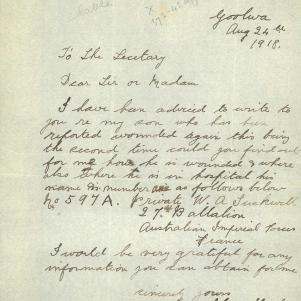 Goolwa
Aug 24th
1918.
To The Secetary
Dear Sir or Madam
I have been advised to write to
you re my son who has been
reported wounded again this being
the second time could you find out
for me how he is wounded & where
also where he is in hospital his
name & number are as follows below
No 597A. Private W. A Tuckwell
27th Battalion
Australian Imperial Forces
France
I would be very grateful for any
information you can obtain for me
sincerely yours